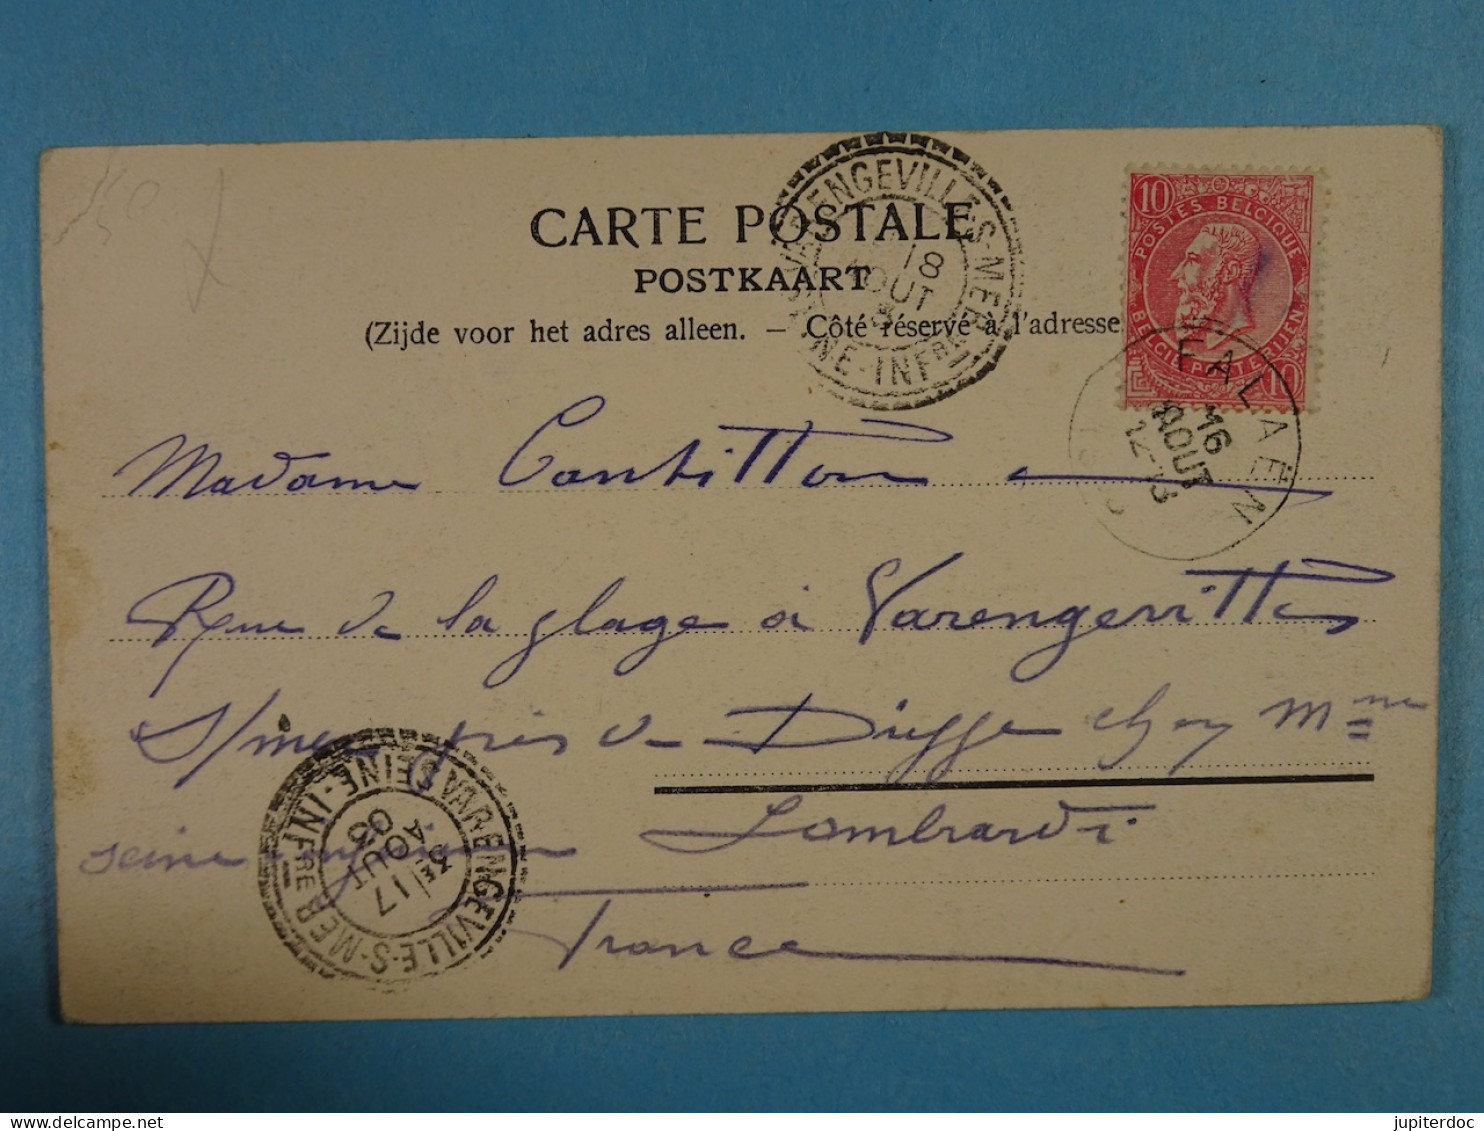 CARTE POSTALE
POSTKAART
(Zijde voor het adres alleen. — Côté réservé à l'adresse
VARENGEVILLE-S-MER
18
AOUT
SEINE-INFRE
10
POSTES BELGIQUE
BELGIE POSTERIJEN
10
FALAËN
16
AOUT
12-13
Madame Cantillon
Rue de la plage à Varengeville
s/mer près de Dieppe chez Mme
Lombardi
seine inférieure
France
VARENGEVILLE-S-MER
3E/17
AOUT
05
SEINE-INFRE
jupiterdoc